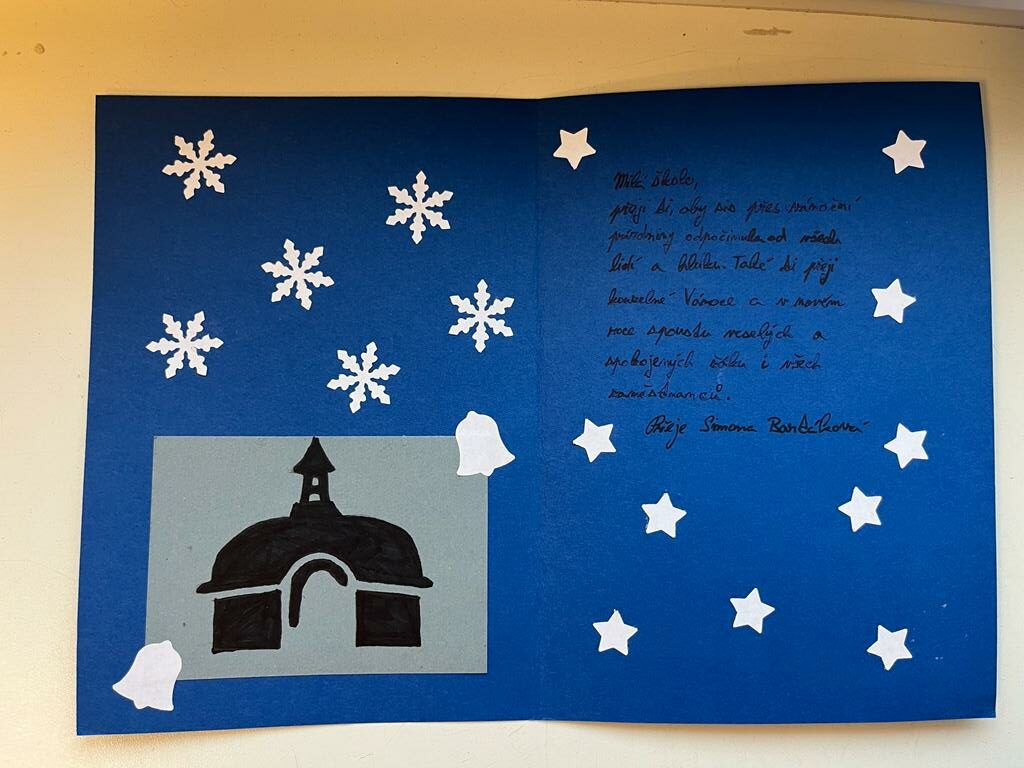 Milá školo,
přeji si, aby sis přes vánoční
prázdniny odpočinula od všech
lidí a hluku. Také si přeji
kouzelné Vánoce a v novém
roce spoustu veselých a
spokojených žáků i všech
zaměstnanců.
Přeje Simona